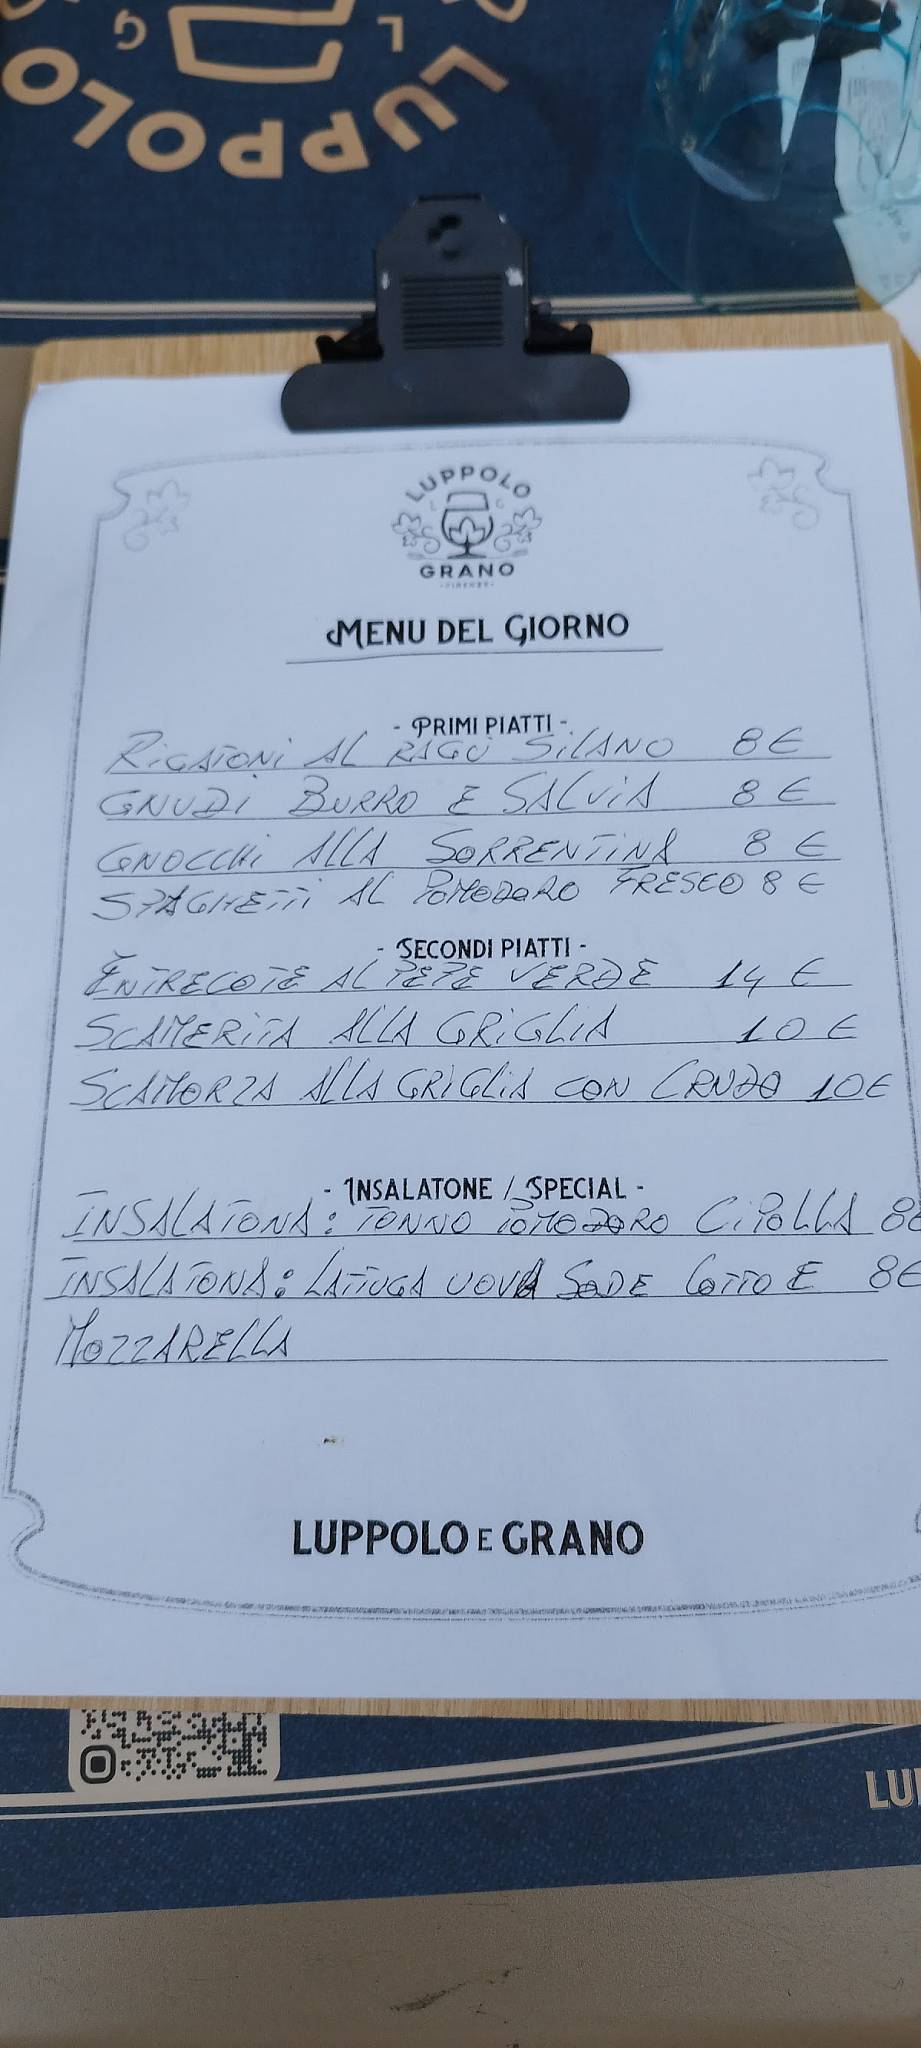 LUPPOLO
L G
LUPPOLO
L G
GRANO
- FIRENZE -
MENU DEL GIORNO
- PRIMI PIATTI -
RIGATONI AL RAGÙ SILANO 8 €
GNUDI BURRO E SALVIA 8 €
GNOCCHI ALLA SORRENTINA 8 €
SPAGHETTI AL POMODORO FRESCO 8 €
- SECONDI PIATTI -
ENTRECOTE AL PEPE VERDE 14 €
SCAMERITA ALLA GRIGLIA 10 €
SCAMORZA ALLA GRIGLIA CON CRUDO 10 €
- INSALATONE / SPECIAL -
INSALATONA: TONNO POMODORO CIPOLLA 8€
INSALATONA: LATTUGA UOVA SODE COTTO E 8€
MOZZARELLA
LUPPOLO E GRANO